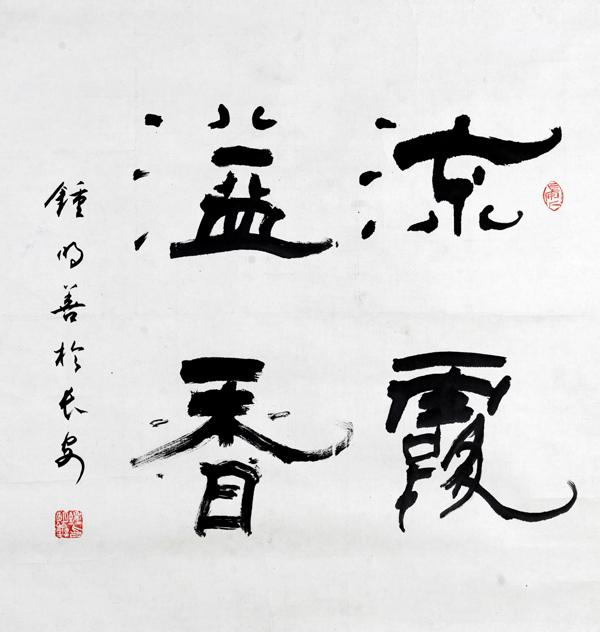 流霞
溢香
鍾明善於長安